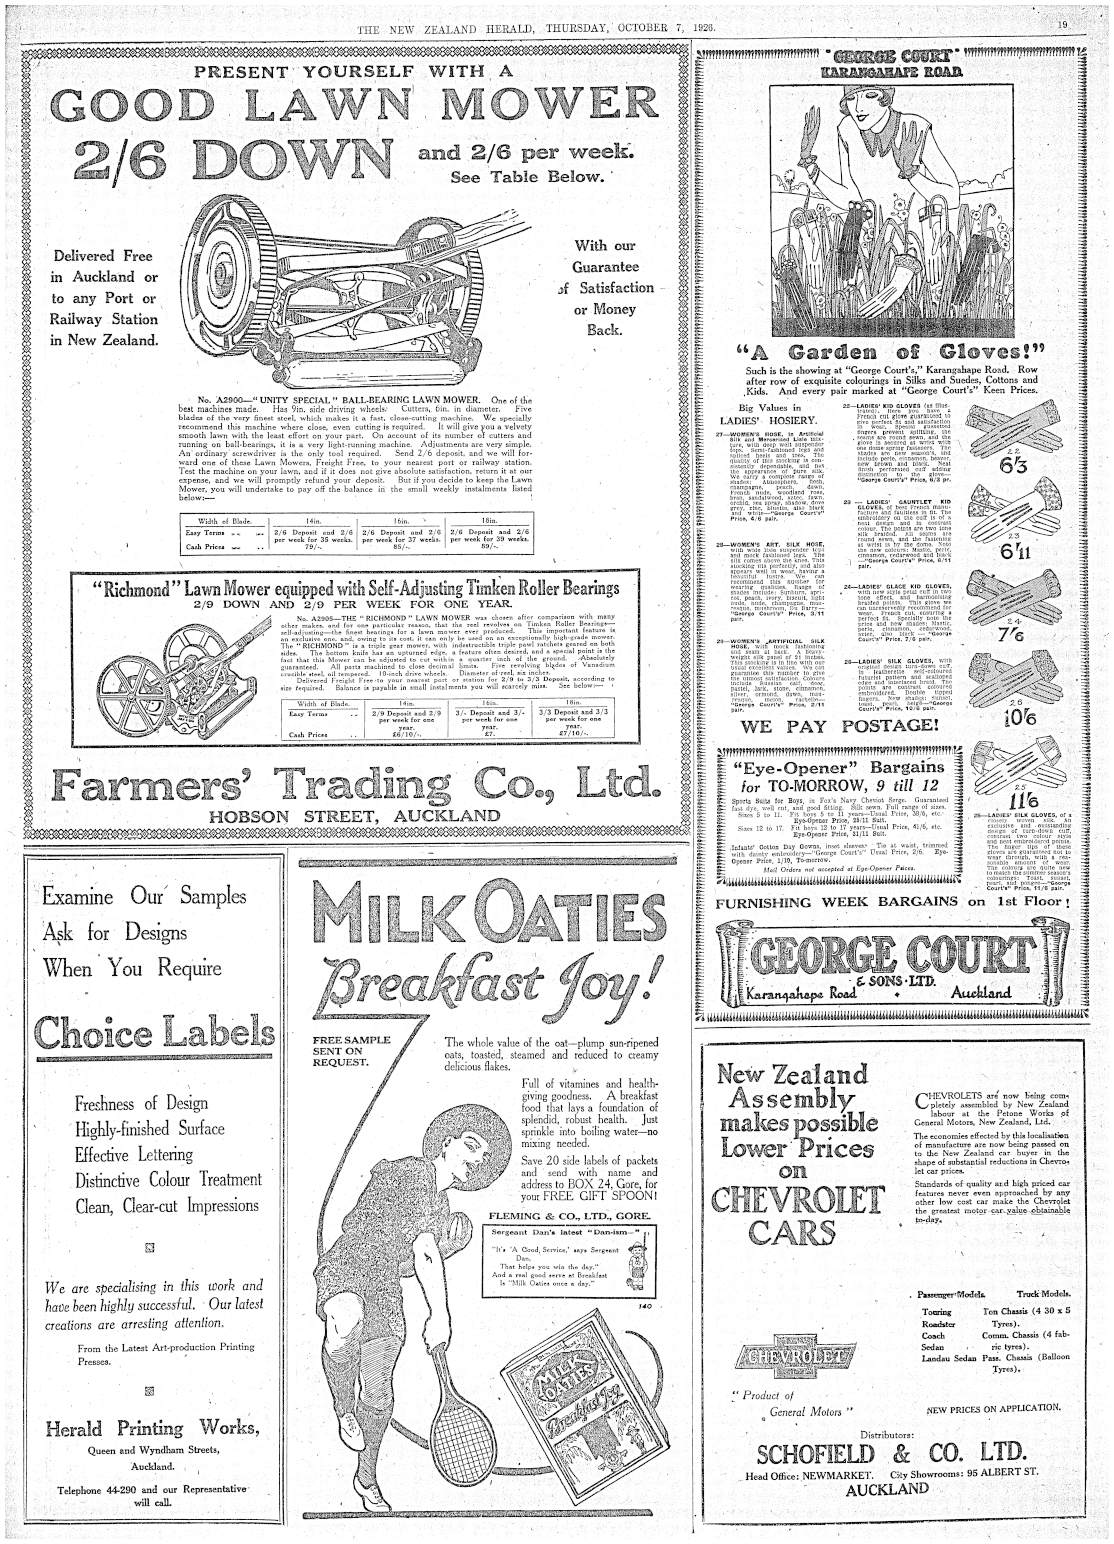 THE NEW ZEALAND HERALD, THURSDAY, OCTOBER 7, 1926.
19
PRESENT YOURSELF WITH A
GOOD LAWN MOWER
2/6 DOWN and 2/6 per week.
See Table Below.
Delivered Free
in Auckland or
to any Port or
Railway Station
in New Zealand.
With our
Guarantee
of Satisfaction
or Money
Back.
No. A2900—"UNITY SPECIAL" BALL-BEARING LAWN MOWER. One of the
best machines made. Has 9in. side driving wheels. Cutters, 6in. in diameter. Five
blades of the very finest steel, which makes it a fast, close-cutting machine. We specially
recommend this machine where close, even cutting is required. It will give you a velvety
smooth lawn with the least effort on your part. On account of its number of cutters and
running on ball-bearings, it is a very light-running machine. Adjustments are very simple.
An ordinary screwdriver is the only tool required. Send 2/6 deposit, and we will for-
ward one of these Lawn Mowers, Freight Free, to your nearest port or railway station.
Test the machine on your lawn, and if it does not give absolute satisfaction, return it at our
expense, and we will promptly refund your deposit. But if you decide to keep the Lawn
Mower, you will undertake to pay off the balance in the small weekly instalments listed
below:—
Width of Blade. 14in. 16in. 18in.
Easy Terms 2/6 Deposit and 2/6 2/6 Deposit and 2/6 2/6 Deposit and 2/6
per week for 35 weeks. per week for 37 weeks. per week for 39 weeks.
Cash Prices 79/-. 85/-. 89/-.
"Richmond" Lawn Mower equipped with Self-Adjusting Timken Roller Bearings
2/9 DOWN AND 2/9 PER WEEK FOR ONE YEAR.
No. A2905—THE "RICHMOND" LAWN MOWER was chosen after comparison with many
other makes, and for one particular reason, that the reel revolves on Timken Roller Bearings—
self-adjusting—the finest bearings for a lawn mower ever produced. This important feature is
an exclusive one, and, owing to its cost, it can only be used on an exceptionally high-grade mower.
The "RICHMOND" is a triple gear mower, with indestructible triple pawl ratchets geared on both
sides. The bottom knife has an upturned edge, a feature often desired, and a special point is the
fact that this Mower can be adjusted to cut within a quarter inch of the ground. Absolutely
guaranteed. All parts machined to close decimal limits. Five revolving blades of Vanadium
crucible steel, oil tempered. 10-inch drive wheels. Diameter of reel, six inches.
Delivered Freight Free to your nearest port or station for 2/9 to 3/3 Deposit, according to
size required. Balance is payable in small instalments you will scarcely miss. See below:—
Width of Blade. 14in. 16in. 18in.
Easy Terms 2/9 Deposit and 2/9 3/- Deposit and 3/- 3/3 Deposit and 3/3
per week for one per week for one per week for one
year. year. year.
Cash Prices £6/10/-. £7. £7/10/-.
Farmers' Trading Co., Ltd.
HOBSON STREET, AUCKLAND
"GEORGE COURT"
KARANGAHAPE ROAD
"A Garden of Gloves!"
Such is the showing at "George Court's," Karangahape Road. Row
after row of exquisite colourings in Silks and Suedes, Cottons and
Kids. And every pair marked at "George Court's" Keen Prices.
Big Values in
LADIES' HOSIERY.
27—WOMEN'S HOSE, in Artificial
Silk and Mercerised Lisle mix-
ture, with deep well suspender
tops. Semi-fashioned legs and
spliced heels and toes. The
quality of this stocking is con-
sistently dependable, and has
the appearance of pure silk.
We carry a complete range of
shades:
grey, zinc, bluefin, also black
and white—"George Court's"
Price, 4/6 pair.
28—WOMEN'S ART. SILK HOSE,
with wide lisle suspender tops
and mock fashioned legs. The
silk comes above the knee. This
stocking fits perfectly, and also
appears well in wear, having a
beautiful lustre. We can
recommend this number for
wearing qualities.
"George Court's" Price, 3/11
pair.
29—WOMEN'S ARTIFICIAL SILK
HOSE, with mock fashioning
and seam at back.
"George Court's" Price, 2/11
pair.
22—LADIES' KID GLOVES (as illus-
trated). Here you have a
French cut glove guaranteed to
give perfect fit and satisfaction
in wear.
"George Court's" Price, 6/3 pr.
23—LADIES' GAUNTLET KID
GLOVES, of best French manu-
facture and faultless in fit. The
embroidery on the cuff is of a
neat design and in contrast
colour.
—"George Court's" Price, 6/11
pair.
24—LADIES' GLACE KID GLOVES,
with new style petal cuff in two
tone effect, and harmonising
braided points.
"George Court's" Price, 7/6 pair.
26—LADIES' SILK GLOVES, with
original design turn-down cuff,
"George Court's" Price, 10/6 pair.
22
6/3
23
6/11
24
7/6
26
10/6
25
11/6
25—LADIES' SILK GLOVES, of a
closely woven silk. An
exclusive and outstanding
design of turn-down cuff,
contrast two colour style
and neat embroidered points.
The finger tips of these
gloves are guaranteed not to
wear through, with a rea-
sonable amount of wear.
The colours are quite new
to match the summer season's
colourings: Toast, sunset,
pearl, and pongee—"George
Court's" Price, 11/6 pair.
WE PAY POSTAGE!
"Eye-Opener" Bargains
for TO-MORROW, 9 till 12
Sports Suits for Boys, in Fox's Navy Cheviot Serge. Guaranteed
fast dye, well cut, and good fitting. Silk sewn. Full range of sizes.
Sizes 5 to 11. Fit boys 5 to 11 years—Usual Price, 38/6, etc.
Eye-Opener Price, 28/11 Suit.
Sizes 12 to 17. Fit boys 12 to 17 years—Usual Price, 41/6, etc.
Eye-Opener Price, 31/11 Suit.
Infants' Cotton Day Gowns, inset sleeves. Tie at waist, trimmed
with dainty embroidery—"George Court's" Usual Price, 2/6. Eye-
Opener Price, 1/10, To-morrow.
Mail Orders not accepted at Eye-Opener Prices.
FURNISHING WEEK BARGAINS on 1st Floor!
GEORGE COURT
& SONS·LTD.
Karangahape Road Auckland
Examine Our Samples
Ask for Designs
When You Require
Choice Labels
Freshness of Design
Highly-finished Surface
Effective Lettering
Distinctive Colour Treatment
Clean, Clear-cut Impressions
We are specialising in this work and
have been highly successful. Our latest
creations are arresting attention.
From the Latest Art-production Printing
Presses.
Herald Printing Works,
Queen and Wyndham Streets,
Auckland.
Telephone 44-290 and our Representative
will call.
MILK OATIES
Breakfast Joy!
FREE SAMPLE
SENT ON
REQUEST.
The whole value of the oat—plump sun-ripened
oats, toasted, steamed and reduced to creamy
delicious flakes.
Full of vitamines and health-
giving goodness. A breakfast
food that lays a foundation of
splendid, robust health. Just
sprinkle into boiling water—no
mixing needed.
Save 20 side labels of packets
and send with name and
address to BOX 24, Gore, for
your FREE GIFT SPOON!
FLEMING & CO., LTD., GORE.
Sergeant Dan's latest "Dan-ism—"
"It's 'A Good, Service,' says Sergeant
Dan,
That helps you win the day."
And a real good serve at Breakfast
Is "Milk Oaties once a day."
140
MILK
OATIES
Breakfast Joy
New Zealand
Assembly
makes possible
Lower Prices
on
CHEVROLET
CARS
CHEVROLETS are now being com-
pletely assembled by New Zealand
labour at the Petone Works of
General Motors, New Zealand, Ltd.
The economies effected by this localisation
of manufacture are now being passed on
to the New Zealand car buyer in the
shape of substantial reductions in Chevro-
let car prices.
Standards of quality and high priced car
features never even approached by any
other low cost car make the Chevrolet
the greatest motor car value obtainable
to-day.
Passenger Models. Truck Models.
Touring Ton Chassis (4 30 x 5
Roadster Tyres).
Coach Comm. Chassis (4 fab-
Sedan ric tyres).
Landau Sedan Pass. Chassis (Balloon
Tyres).
CHEVROLET
"Product of
General Motors"
NEW PRICES ON APPLICATION.
Distributors:
SCHOFIELD & CO. LTD.
Head Office: NEWMARKET. City Showrooms: 95 ALBERT ST.
AUCKLAND